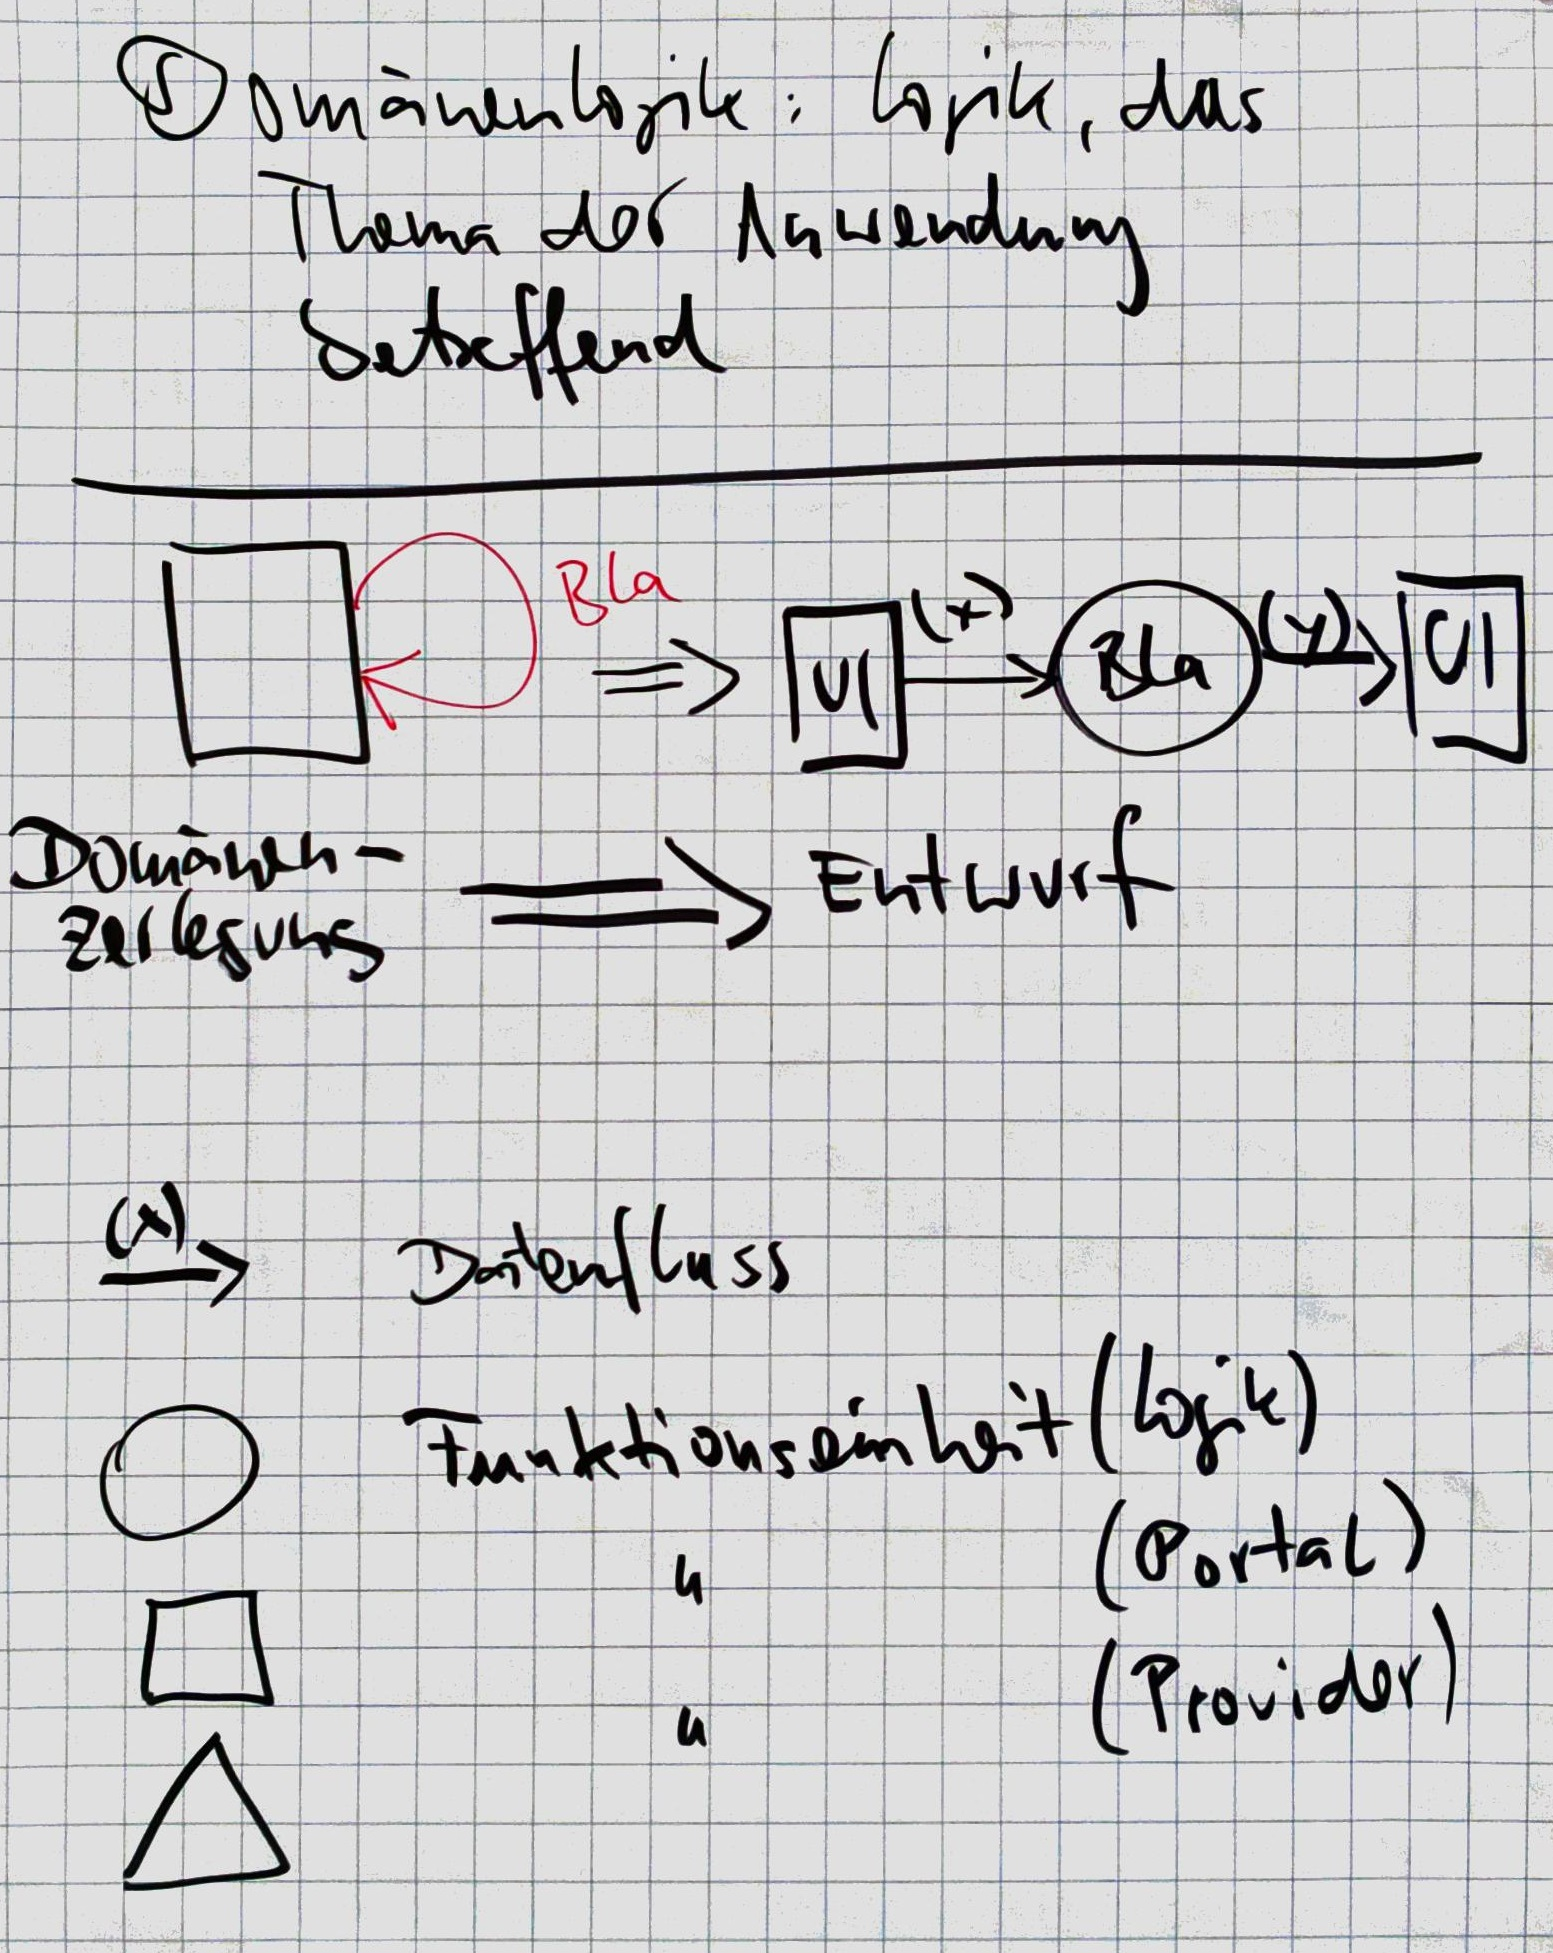 ⑤ Domänenlogik: Logik, das
Thema der Anwendung
betreffend
Bla
UI (x) Bla (y) UI
Domänen-
zerlegung
Entwurf
(x) Datenfluss
Funktionseinheit (Logik)
" (Portal)
" (Provider)